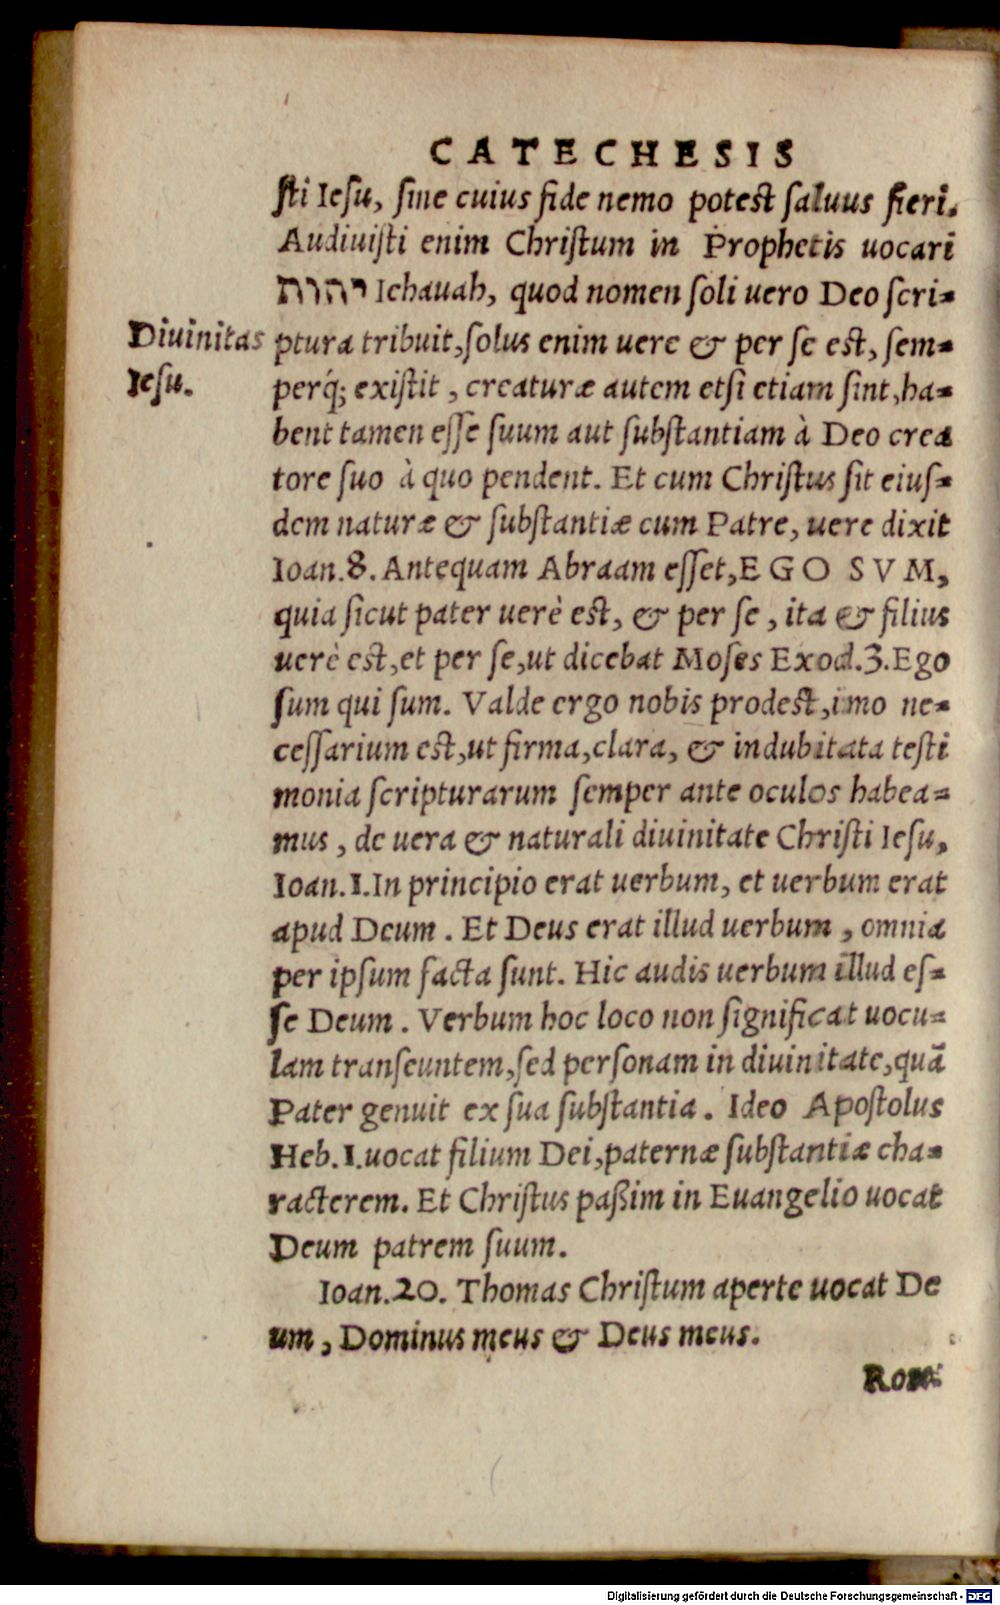 CATECHESIS
sti Iesu, sine cuius fide nemo potest saluus fieri.
Audiuisti enim Christum in Prophetis uocari
יהוה Iehauah, quod nomen soli uero Deo scri-
Diuinitas
Iesu.
ptura tribuit, solus enim uere & per se est, sem-
perq́; existit, creaturæ autem etsi etiam sint, ha-
bent tamen esse suum aut substantiam à Deo crea
tore suo à quo pendent. Et cum Christus sit eius-
dem naturæ & substantiæ cum Patre, uere dixit
Ioan.8. Antequam Abraam esset, EGO SVM,
quia sicut pater uerè est, & per se, ita & filius
uerè est, et per se, ut dicebat Moses Exod.3. Ego
sum qui sum. Valde ergo nobis prodest, imo ne-
cessarium est, ut firma, clara, & indubitata testi
monia scripturarum semper ante oculos habea-
mus, de uera & naturali diuinitate Christi Iesu,
Ioan.1. In principio erat uerbum, et uerbum erat
apud Deum. Et Deus erat illud uerbum, omnia
per ipsum facta sunt. Hic audis uerbum illud es-
se Deum. Verbum hoc loco non significat uocu-
lam transeuntem, sed personam in diuinitate, quā
Pater genuit ex sua substantia. Ideo Apostolus
Heb.1. uocat filium Dei, paternæ substantiæ cha-
racterem. Et Christus paßim in Euangelio uocat
Deum patrem suum.
Ioan.20. Thomas Christum aperte uocat De
um, Dominus meus & Deus meus.
Rom.
Digitalisierung gefördert durch die Deutsche Forschungsgemeinschaft - DFG